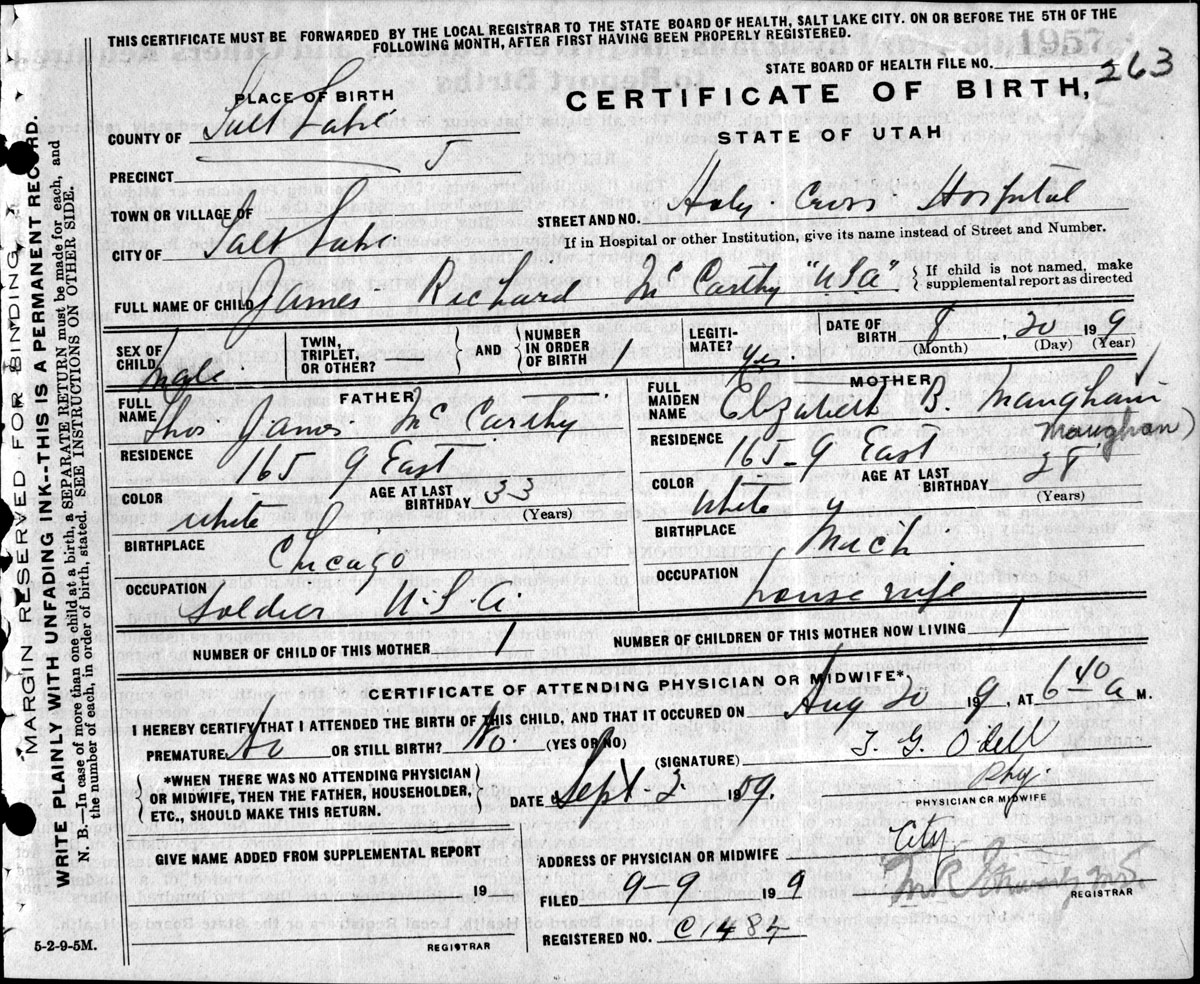 THIS CERTIFICATE MUST BE FORWARDED BY THE LOCAL REGISTRAR TO THE STATE BOARD OF HEALTH, SALT LAKE CITY. ON OR BEFORE THE 5TH OF THE
FOLLOWING MONTH, AFTER FIRST HAVING BEEN PROPERLY REGISTERED.
1957
STATE BOARD OF HEALTH FILE NO. 263
PLACE OF BIRTH
CERTIFICATE OF BIRTH,
STATE OF UTAH
COUNTY OF Salt Lake
PRECINCT 5
TOWN OR VILLAGE OF
STREET AND NO. Holy Cross Hospital
CITY OF Salt Lake
If in Hospital or other Institution, give its name instead of Street and Number.
FULL NAME OF CHILD James Richard McCarthy "U.S.A" { If child is not named, make
supplemental report as directed
SEX OF CHILD Male TWIN, TRIPLET, OR OTHER? AND NUMBER IN ORDER OF BIRTH 1 LEGITI-MATE? Yes. DATE OF BIRTH 8, 20 199
(Month) (Day) (Year)
FATHER MOTHER
FULL NAME Thos James McCarthy FULL MAIDEN NAME Elizabeth B. Mangham
Maughan)
RESIDENCE 165 9 East RESIDENCE 165-9 East
COLOR White AGE AT LAST BIRTHDAY 33 (Years) COLOR White AGE AT LAST BIRTHDAY 28 (Years)
BIRTHPLACE Chicago BIRTHPLACE Mich
OCCUPATION Soldier U.S.A. OCCUPATION house wife
NUMBER OF CHILD OF THIS MOTHER 1 NUMBER OF CHILDREN OF THIS MOTHER NOW LIVING 1
CERTIFICATE OF ATTENDING PHYSICIAN OR MIDWIFE*.
I HEREBY CERTIFY THAT I ATTENDED THE BIRTH OF THIS CHILD, AND THAT IT OCCURED ON Aug 20 199, AT 6 40 a M.
PREMATURE No OR STILL BIRTH? No. (YES OR NO)
(SIGNATURE) T. G. Odell
Phy.
PHYSICIAN OR MIDWIFE
*WHEN THERE WAS NO ATTENDING PHYSICIAN
OR MIDWIFE, THEN THE FATHER, HOUSEHOLDER,
ETC., SHOULD MAKE THIS RETURN.
DATE Sept. 2 1909.
GIVE NAME ADDED FROM SUPPLEMENTAL REPORT
19
REGISTRAR
ADDRESS OF PHYSICIAN OR MIDWIFE City
FILED 9-9 199
REGISTRAR
REGISTERED NO. C1485
5-2-9-5M.
MARGIN RESERVED FOR BINDING
WRITE PLAINLY WITH UNFADING INK--THIS IS A PERMANENT RECORD.
N. B.—In case of more than one child at a birth, a SEPARATE RETURN must be made for each, and
the number of each, in order of birth, stated. SEE INSTRUCTIONS ON OTHER SIDE.